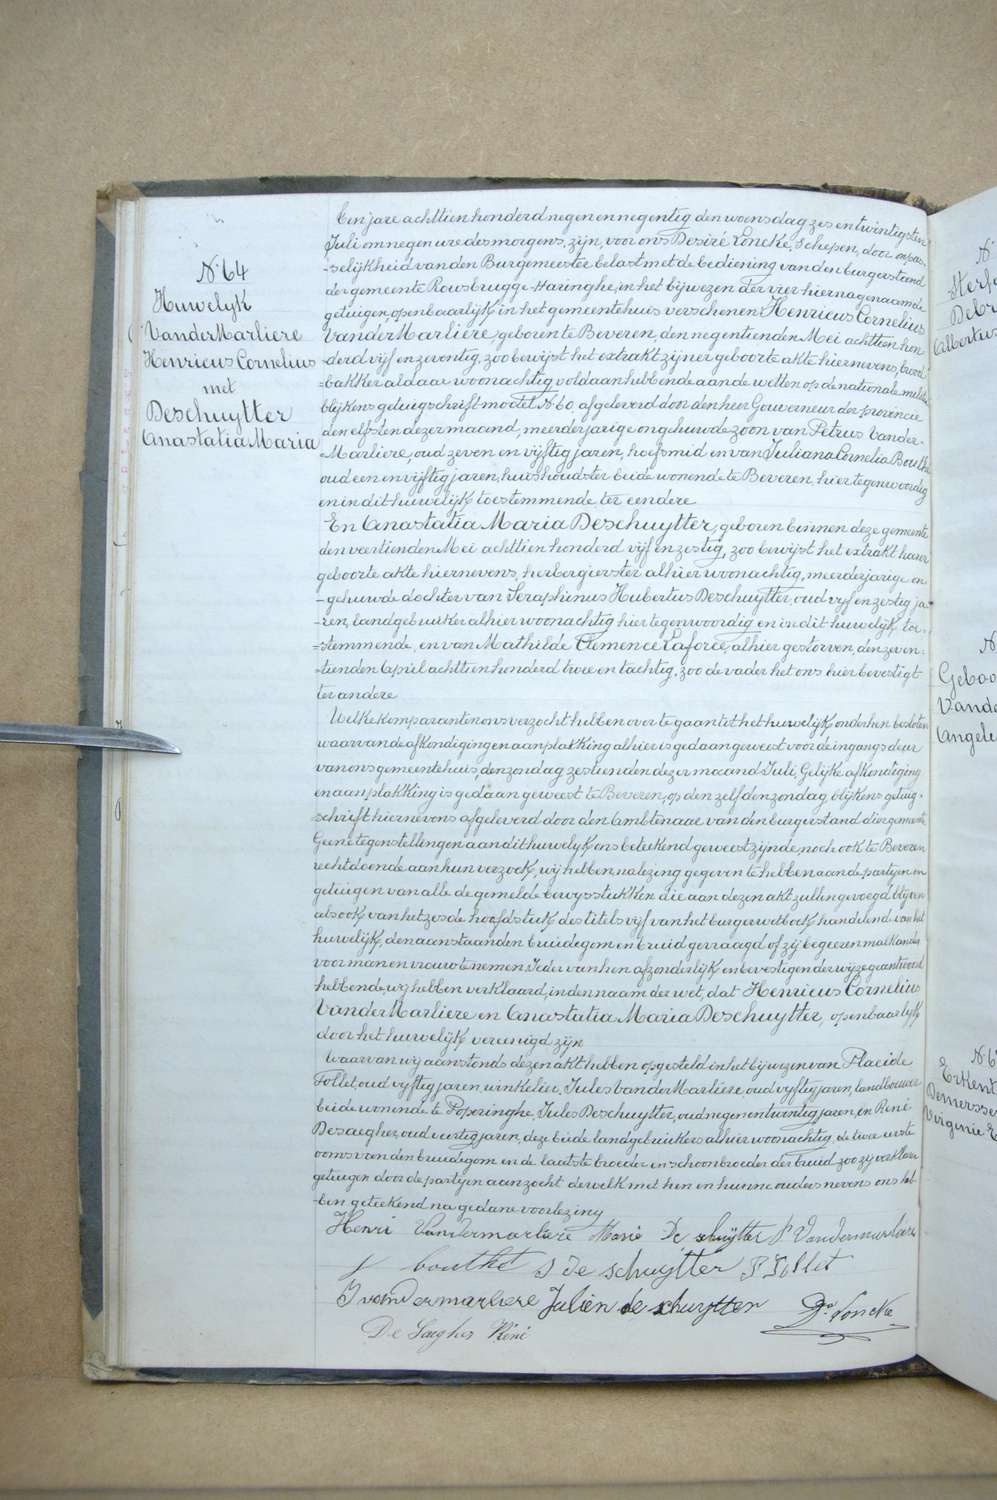 N. 64
Huwelyk
VanderMarliere
Henricus Cornelius
met
Deschuytter
Anastatia Maria
Een jare achttien honderd negen en negentig den woensdag zes en twintigsten
Juli om negen ure des morgens, zijn, voor ons Desiré Loncke, Schepen, door onpas-
-selijkheid van den Burgemeester belast met de bediening van den burgerstand
der gemeente Rousbrugge-Haringhe, in het bijwezen der vier hiernagenaamde
getuigen, openbaarlijk in het gemeentehuis verschenen Henricus Cornelius
VanderMarliere, geboren te Beveren, den negentienden Mei achttien hon
derd vijf en zeventig, zoo bewijst het extrakt zijner geboorte akte hiernevens, brood
=bakker aldaar woonachtig voldaan hebbende aan de wetten op de nationale militie
blijkens getuigschrift model N. 60, afgeleverd door den heer Gouverneur der provincie
den elfsten dezer maand, meerderjarige ongehuwde zoon van Petrus Vander-
-Marliere, oud zeven en vijftig jaren, hoefsmid en van Juliana Cornelia Bouthé
oud een en vijftig jaren, huishoudster beide wonende te Beveren, hier tegenwoordig
en in dit huwelijk toestemmende ter eendere
En Anastatia Maria Deschuytter, geboren binnen deze gemeente
den veertienden Mei achttien honderd vijf en zestig, zoo bewijst het extrakt harer
geboorte akte hiernevens, herbergierster alhier woonachtig, meerderjarige on
-gehuwde dochter van Seraphinus Hubertus Deschuytter, oud vijf en zestig ja-
-ren, landgebruiker alhier woonachtig hier tegenwoordig en in dit huwelijk toe-
=stemmende, en van Mathilde Clemence Laforce, alhier gestorven, den zeven-
-tienden April achttien honderd twee en tachtig, zoo de vader het ons hier bevestigt
ter andere
Welke komparanten ons verzocht hebben over te gaan tot het huwelijk onder hen besloten
waarvan de afkondiging en aanplakking alhier is gedaan geweest voor de ingangsdeur
van ons gemeentehuis, den zondag zestienden dezer maand Juli, Gelijke afkondiging
en aanplakking is gedaan geweest te Beveren, op den zelfden zondag, blijkens getuig-
-schrift hiernevens afgeleverd door den Ambtenaar van den burgerstand dier gemeente
Geene tegenstellingen aan dit huwelijk ons beteekend geweest zijnde, noch ook te Beveren
recht doende aan hun verzoek, wij hebben na lezing gegeven te hebben aan de partijen en
getuigen van alle de gemelde bewysstukken die aan dezen akt zullen gevoegd blijven
alsook van het zesde hoofdstuk des titels vijf van het burgerwetboek handelend van het
huwelijk, den aanstaanden bruidegom en bruid gevraagd of zij begeeren malkander
voor man en vrouw te nemen. Ieder van hen afzonderlijk en bevestigenderwijze geantwoord
hebbende, wy hebben verklaard, in den naam der wet, dat Henricus Cornelius
VanderMarliere en Anastatia Maria Deschuytter, openbaarlyk
door het huwelijk vereenigd zijn
Waarvan wy aanstonds dezen akt hebben opgesteld in het bijwezen van Placide
Follet, oud vyftig jaren, winkelier, Jules VanderMarliere oud vyftig jaren, landbouwer
beide wonende te Poperinghe, Jules Deschuytter, oud negen en twintig jaren, en René
Desaegher, oud veertig jaren, deze beide landgebruikers alhier woonachtig, de twee eerste
ooms van den bruidegom en de laatste broeder en schoonbroeder der bruid zoo zij verklaren
getuigen door de partijen aanzocht dewelk met hen en hunne ouders nevens ons heb-
-ben geteekend na gedane voorlezing
Henri Vandermarliere Marie De schuÿtter P Vandermarliere
J bouthé S De schuÿtter P Follet
J vandermarliere Julien de schuytter Dré Loncke
De Saegher Réné
N
Sterf
Debr
Albertus
N
Geboo
Vande
Angele
N. 6
Erkent
Demersse
Virginie E